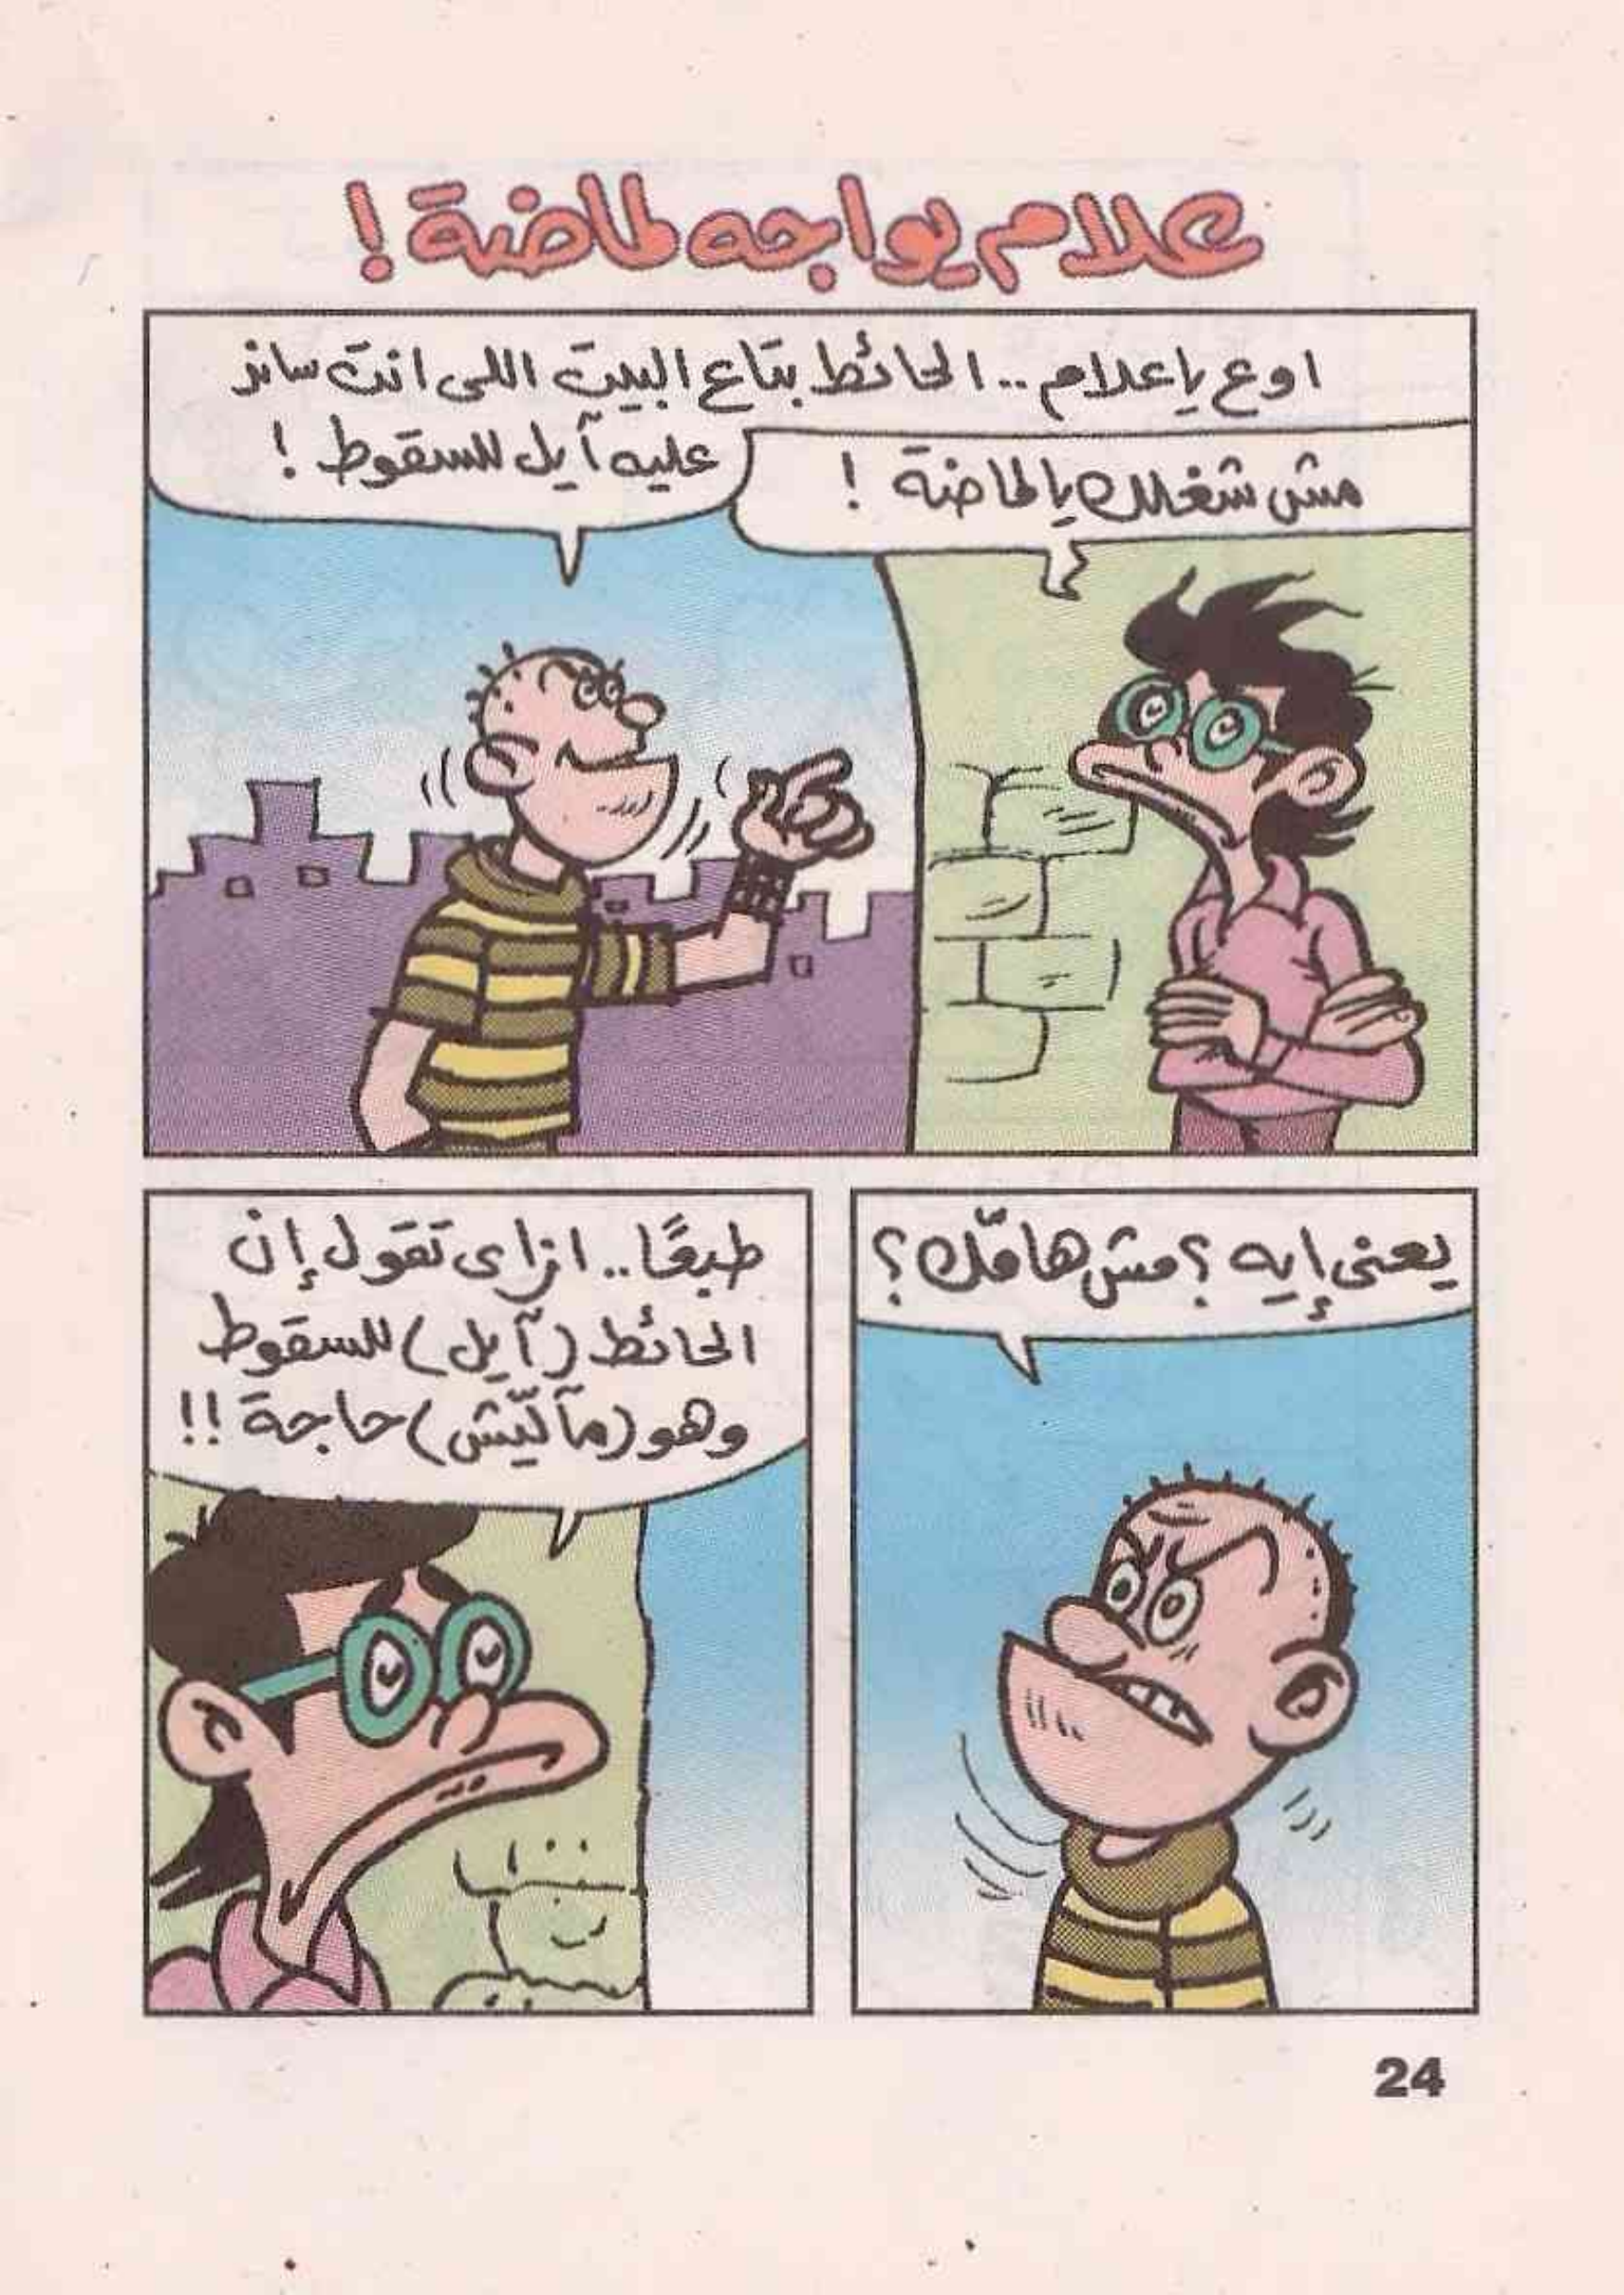 علام يواجه لماضة !
اوع ياعلام .. الحائط بتاع البيت اللى انت ساند
عليه آيل للسقوط !
مش شغلك يالماضة !
يعنى إيه ؟ مش هامّك ؟
طبعًا .. ازاى تقول إن
الحائط (آيل) للسقوط
وهو (مآلّيش) حاجة !!
24